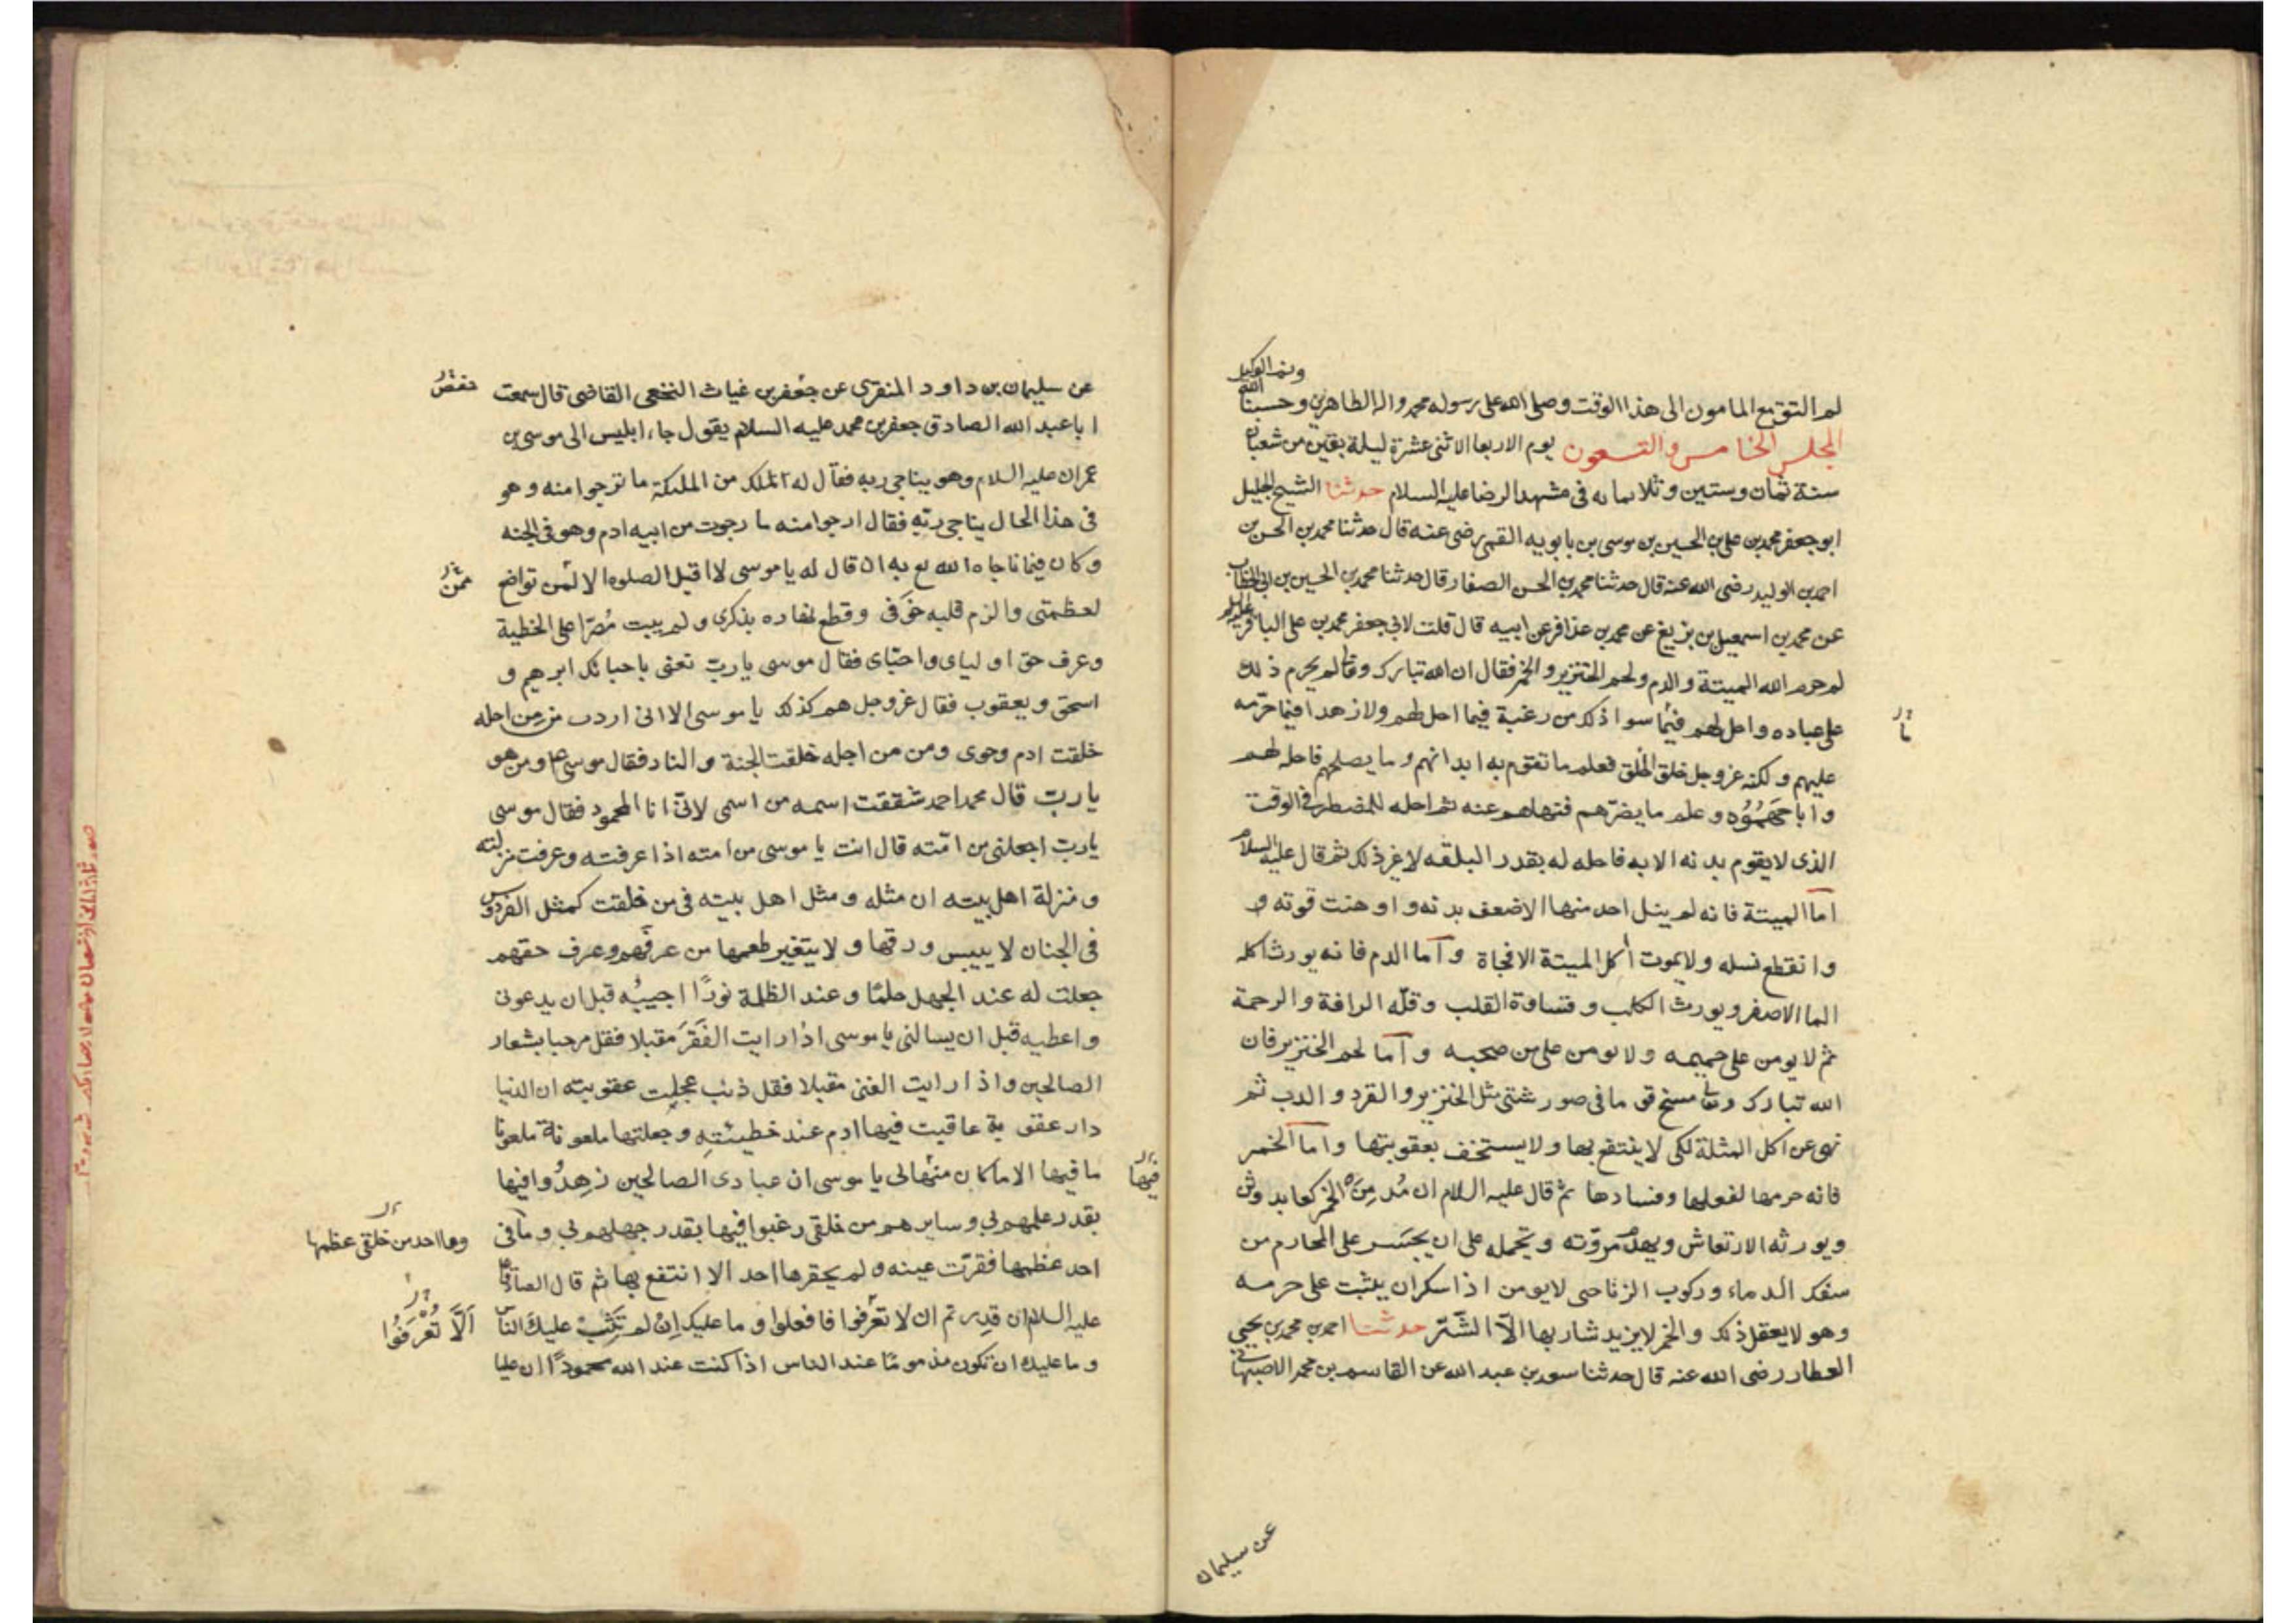 ونعم الوكيل
لم التوقيع المامون الى هذا الوقت وصلى الله على رسوله محمد واله الطاهرين وحسبنا الله
المجلس الخامس والتسعون يوم الاربعا لاثنى عشرة ليلة بقين من شعبان
سنة ثمان وستين وثلاىمايه فى مشهد الرضا عليه السلام حدثنا الشيخ الجليل
ابو جعفر محمد بن على بن الحسين بن موسى بن بابويه القمى رضى عنه قال حدثنا محمد بن الحسن بن
احمد بن الوليد رضى الله عنه قال حدثنا محمد بن الحسن الصفار قال حدثنا محمد بن الحسين بن ابى الخطاب
عن محمد بن اسمعيل بن بزيغ عن محمد بن عذافر عن ابيه قال قلت لابى جعفر محمد بن على الباقر عليه السلم
لم حرم الله الميتة والدم ولحم الخنزير والخمر فقال ان الله تبارك وتعالى لم يحرم ذلك
على عباده واحل لهم فيما سوا ذلك من رغبة فيما احل لهم ولا زهدا فيما حرمه
ما
عليهم ولكنه عز وجل خلق الخلق فعلم ما تقوم به ابدانهم وما يصلحهم فاحله لهم
واباحهموه وعلم ما يضرهم فنهاهم عنه ثم احله للمضطر فى الوقت
الذى لا يقوم بدنه الا به فاحله له بقدر البلغه لا غير ذلك ثم قال عليه السلام
اما الميتة فانه لم ينل احد منها الا ضعف بدنه واوهنت قوته و
وانقطع نسله ولا يموت أكل الميتة الا فجاة واما الدم فانه يورث اكله
الما الاصفر ويورث الكلب وقساوة القلب وقلّه الرافة والرحمة
ثم لا يومن على حميمه ولا يومن على من صحبه واما لحم الخنزير فان
الله تبارك وتعالى مسخ قوما فى صور شتى مثل الخنزير والقرد والدب ثم
نهى عن اكل المثلة لكى لا ينتفع بها ولا يستخف بعقوبتها واما الخمر
فانه حرمها لفعلها وفسادها ثم قال عليه السلام ان مُدمِنَ الخمر كعابد وثن
ويورثه الارتعاش ويهدم مروّته وتحمله على ان يجسر على المحارم من
سفك الدماء وركوب الزنا حتى لا يومن اذا سكران يثبت على حرمه
وهو لا يعقل ذلك والخمر لا يزيد شاربها الّا الشّر حدثنا احمد بن محمد بن يحيى
العطار رضى الله عنه قال حدثنا سعد بن عبد الله عن القاسم بن محمد الاصبهانى
عن سليمان
عن سليمان بن داود المنقرى عن جعفر بن غياث النخعى القاضى قال سمعت
حفص
ابا عبد الله الصادق جعفر بن محمد عليه السلام يقول جاء ابليس الى موسى بن
عمران عليه السلام وهو يناجى ربه فقال له الملك من الملىكة ما ترجوا منه وهو
فى هذا الحال يناجى ربّه فقال ارجوا منه ما رجوت من ابيه ادم وهو فى الجنه
وكان فيما ناجاه الله تع به ان قال له يا موسى لا اقبل الصلوه الا لمن تواضع
ممّن
لعظمتى والزم قلبه خوفى وقطع نهاره بذكرى ولم يبت مُصرّا على الخطية
وعرف حق اولياى واحبّاى فقال موسى يا ربّ تعنى باحبائك ابرهيم و
اسحق ويعقوب فقال عز وجل هم كذلك يا موسى الا انى اردت من من اجله
خلقت ادم وحوى ومن من اجله خلقت الجنة والنار فقال موسى ع ومن هو
يا ربّ قال محمد احمد شققت اسمه من اسمى لانّى انا المحمود فقال موسى
يا ربّ اجعلنى من امّته قال انت يا موسى من امته اذا عرفته وعرفت منزلته
ومنزلة اهل بيته ان مثله ومثل اهل بيته فى من خلقت كمثل الفردوس
فى الجنان لا ييبس ورقها ولا يتغير طعمها من عرفهم وعرف حقهم
جعلت له عند الجهل حلمًا وعند الظلمة نورًا اجيبُه قبل ان يدعونى
واعطيه قبل ان يسالنى يا موسى اذا رايت الفَقرَ مقبلا فقل مرحبا بشعار
الصالحين واذا رايت الغنى مقبلا فقل ذنب عجلت عقوبته ان الدنيا
دار عقوبة عاقبت فيها ادم عند خطيئتهِ وجعلتها ملعونة ملعونا
ما فيها الا ما كان منها لى يا موسى ان عبادى الصالحين زهِدُوا فيها
فيها
بقدر علمهم بى وسايرهم من خلقى رغبوا فيها بقدر جهلهم بى وما فى
وما احد من خلقى عظمها
احد عظمها فقرّت عينه ولم يحقرها احد الا انتفع بها ثم قال الصادق
عليه السلام ان قدرتم ان لا تعرفوا فافعلوا وما عليك اِنْ لم يُثنِ عليك الناس
اَلَّا تُعْرَفُوا
وما عليك ان تكون مذمومًا عند الناس اذا كنت عند الله محمودًا ان عليا